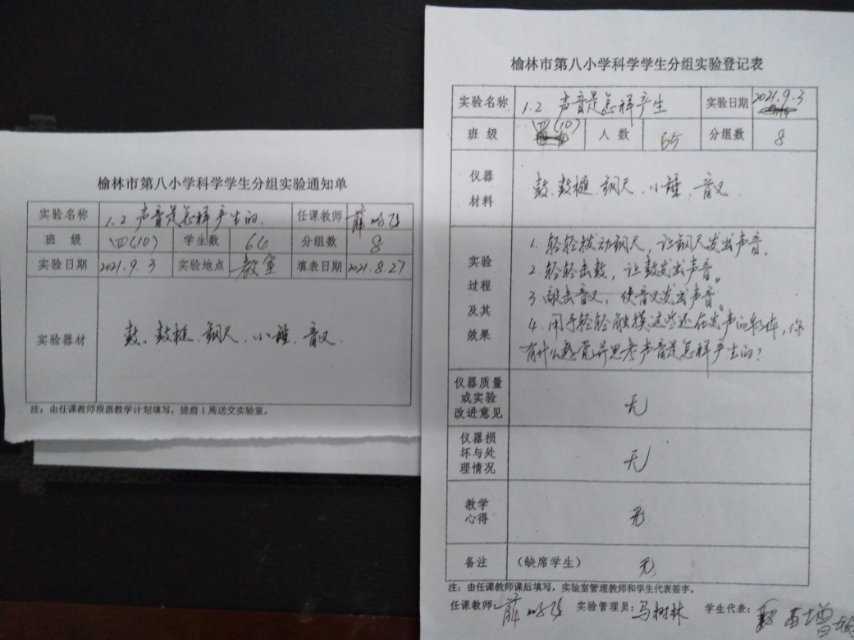 榆林市第八小学科学学生分组实验通知单
实验名称 1.2 声音是怎样产生的. 任课教师 薛
班级 四(10) 学生数 分组数 8
实验日期 2021.9.3 实验地点 教室 填表日期 2021.8.27
实验器材 鼓、鼓槌、钢尺、小锤、音叉
注：由任课教师根据教学计划填写，提前1周送交实验室。
榆林市第八小学科学学生分组实验登记表
实验名称 1.2 声音是怎样产生 实验日期 2021.9.3
班级 四(10) 人数 65 分组数 8
仪器
材料
鼓、鼓槌、钢尺、小锤、音叉
实验
过程
及其
效果
1. 轻轻拨动钢尺，让钢尺发出声音.
2. 轻轻击鼓，让鼓发出声音。
3. 敲击音叉，使音叉发出声音。
4. 用手轻轻触摸这些还在发声的物体，你
有什么感觉并思考声音是怎样产生的？
仪器质量
或实验
改进意见
无
仪器损
坏与处
理情况
无
教学
心得
无
备注 (缺席学生) 无
注：由任课教师课后填写，实验室管理教师和学生代表签字。
任课教师：薛 实验管理员：马树林 学生代表：